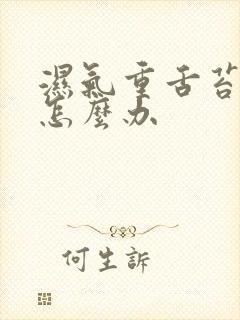 濕氣重舌苔
怎麼办
何生訴